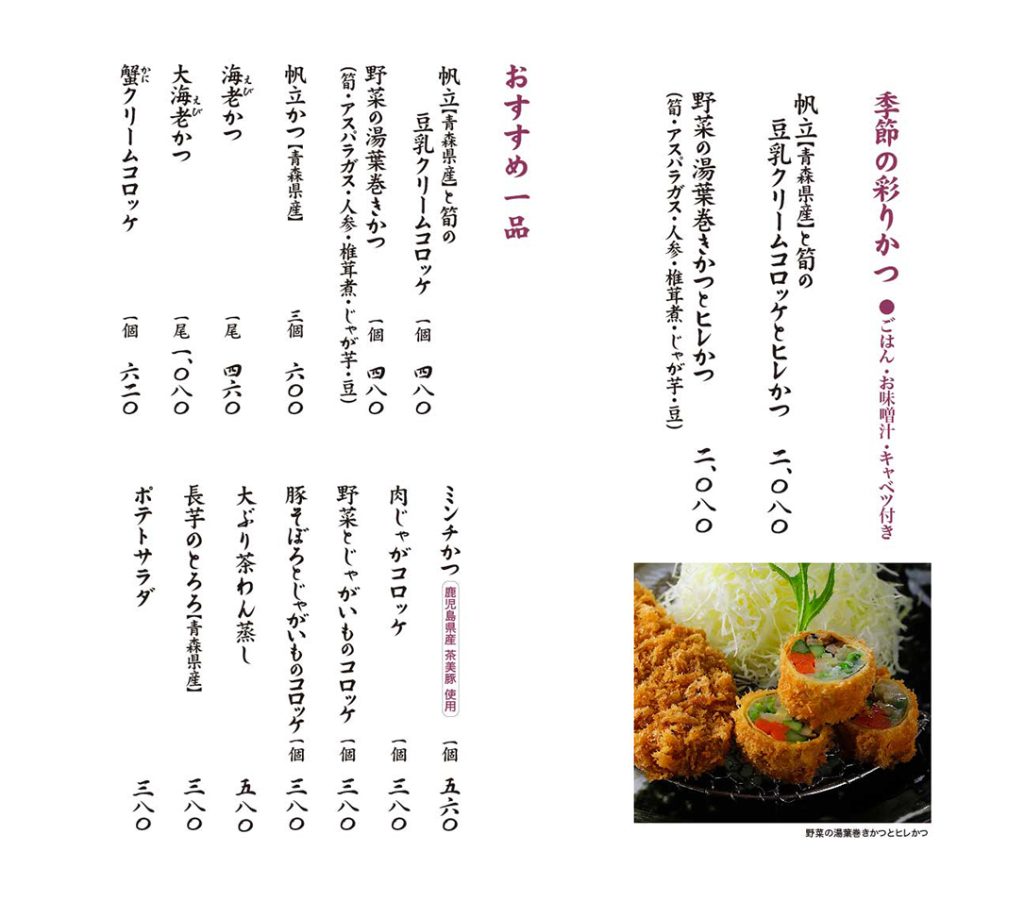 季節の彩りかつ ●ごはん・お味噌汁・キャベツ付き
帆立【青森県産】と筍の
豆乳クリームコロッケとヒレかつ 二、〇八〇
野菜の湯葉巻きかつとヒレかつ 二、〇八〇
(筍・アスパラガス・人参・椎茸煮・じゃが芋・豆)
野菜の湯葉巻きかつとヒレかつ
おすすめ一品
帆立【青森県産】と筍の
豆乳クリームコロッケ 一個 四八〇
野菜の湯葉巻きかつ 一個 四八〇
(筍・アスパラガス・人参・椎茸煮・じゃが芋・豆)
帆立かつ【青森県産】 三個 六〇〇
海老かつ 一尾 四六〇
えび
大海老かつ 一尾 一、〇八〇
えび
蟹クリームコロッケ 一個 六二〇
かに
ミンチかつ 鹿児島県産 茶美豚 使用 一個 五六〇
肉じゃがコロッケ 一個 三八〇
野菜とじゃがいものコロッケ 一個 三八〇
豚そぼろとじゃがいものコロッケ 一個 三八〇
大ぶり茶わん蒸し 五八〇
長芋のとろろ【青森県産】 三八〇
ポテトサラダ 三八〇